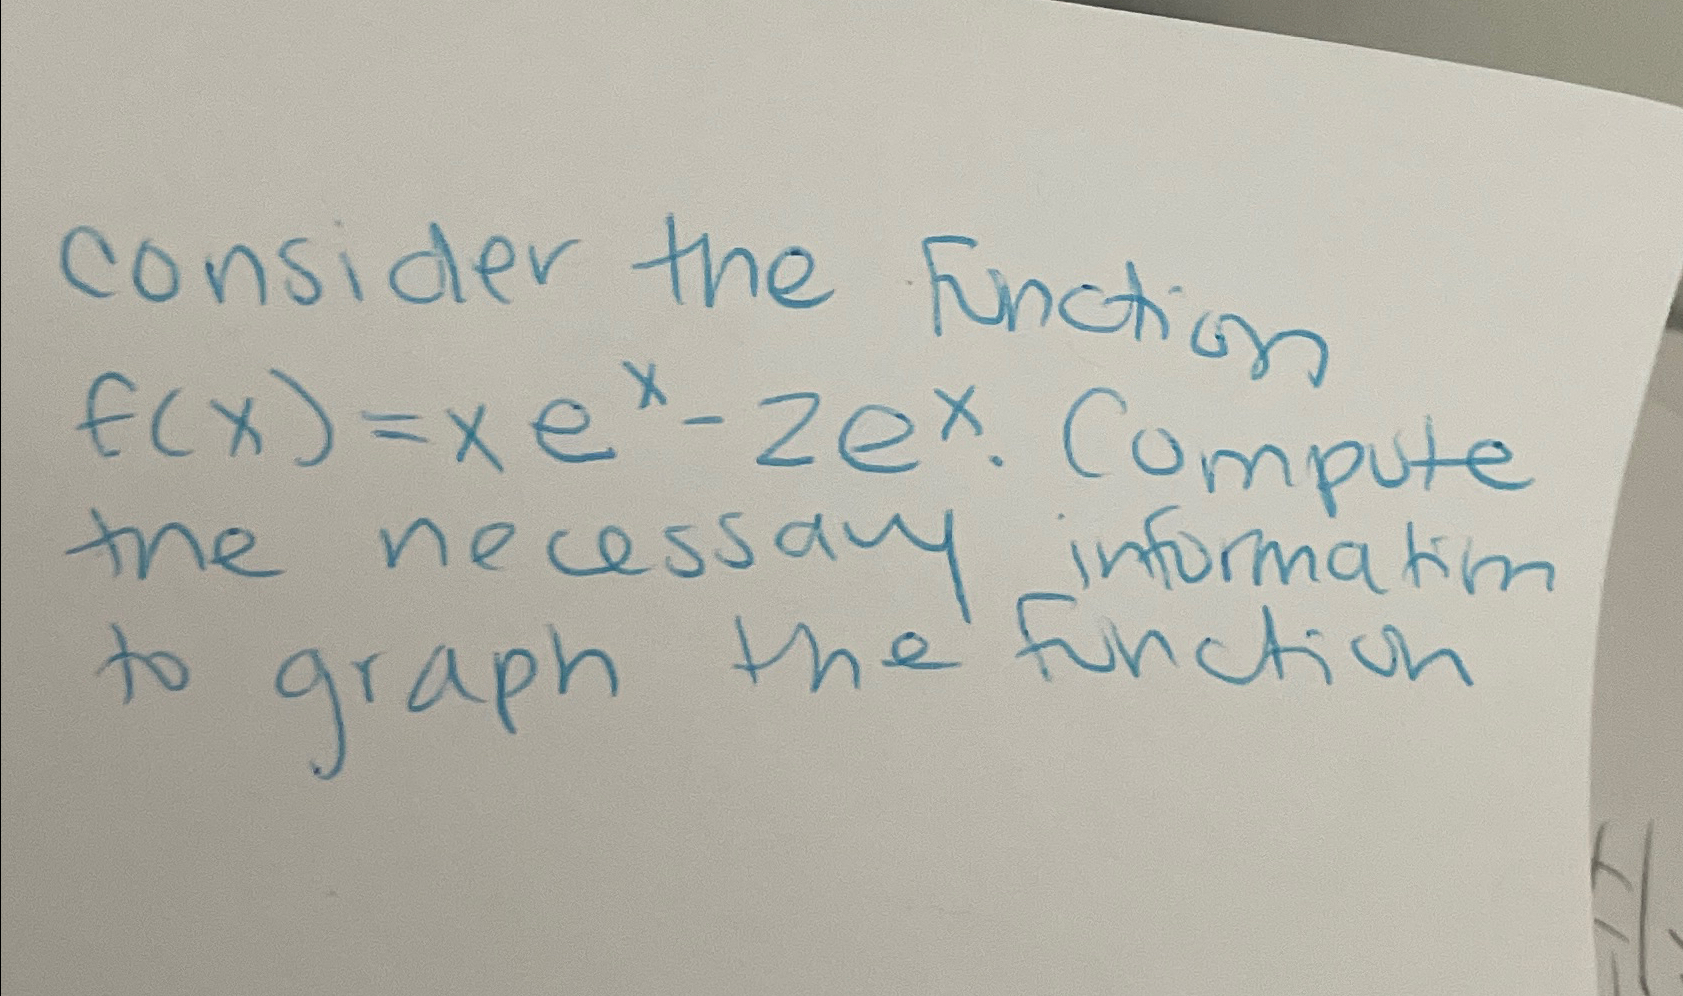 consider the function
f(x) = xe^x - 2e^x. Compute
the necessary information
to graph the function